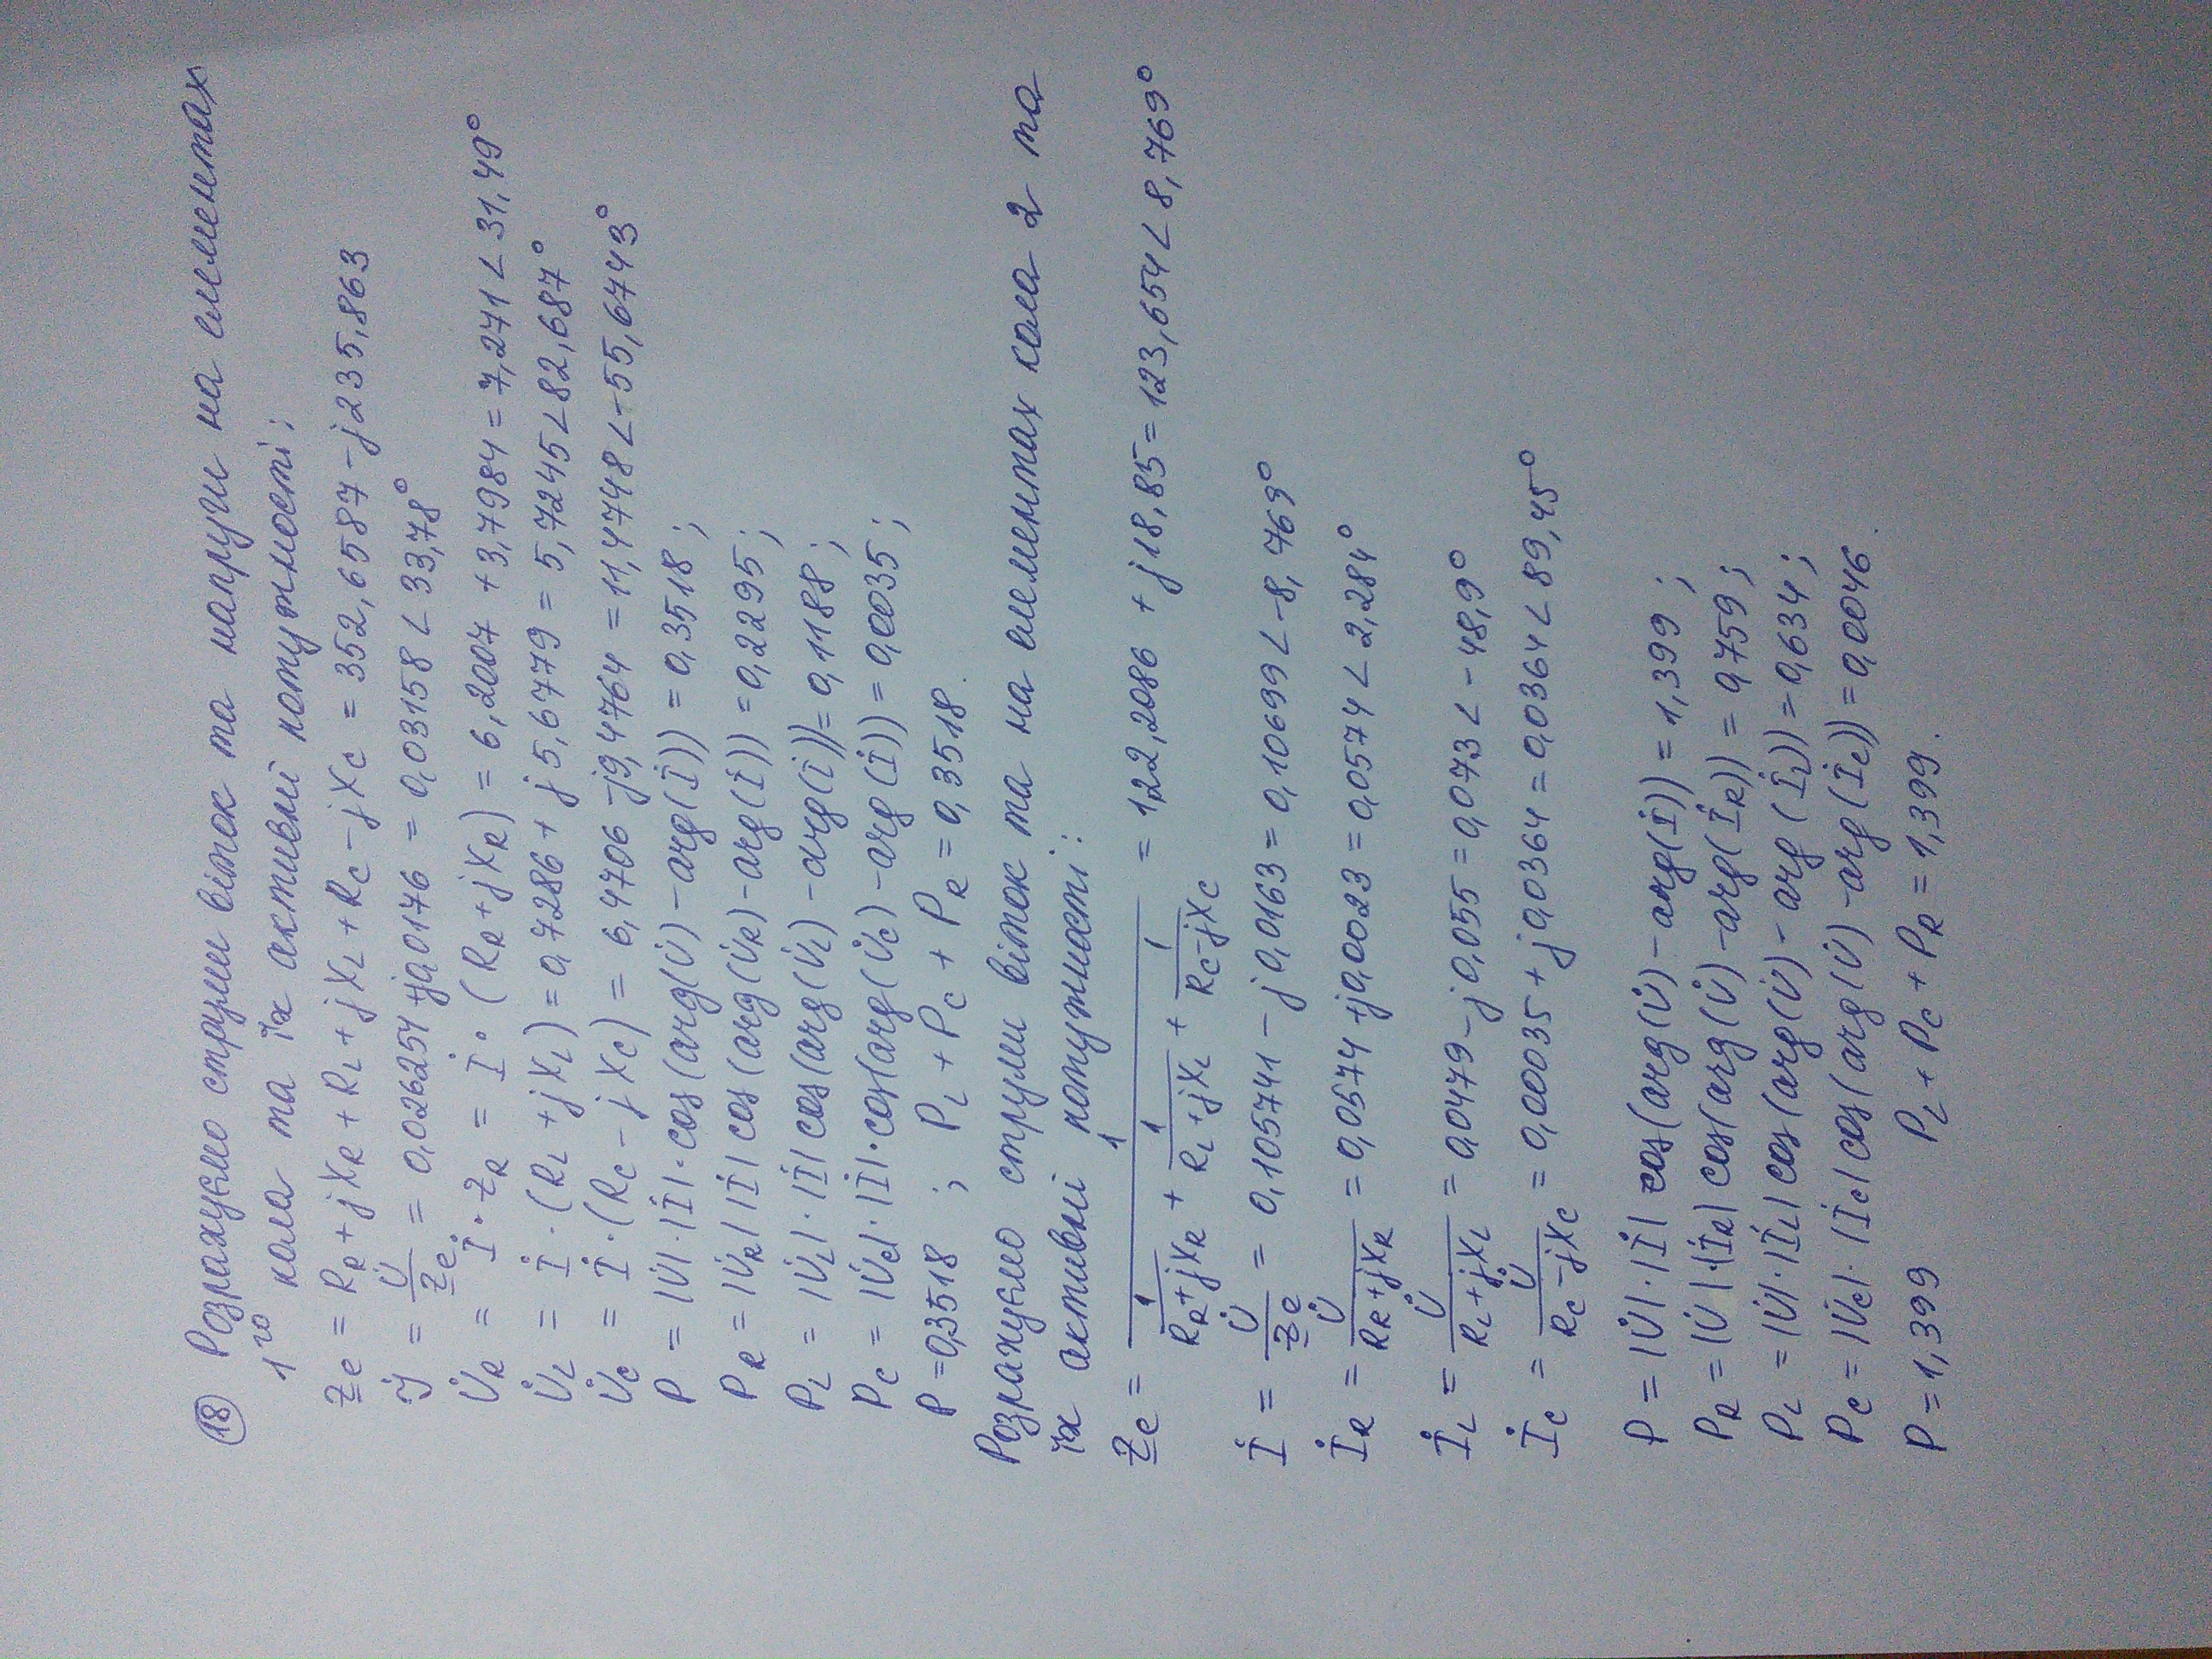 18 Розрахуємо струми віток та напруги на елементах
1го кола та їх активні потужності:
Ze = RR + jXR + RL + jXL + RC - jXC = 352,6587 - j235,863
İ = U̇/Ze = 0,026254 + j0,0176 = 0,03158 ∠ 33,78°
U̇R = İ · ZR = İ · (RR + jXR) = 6,2007 + 3,7984 = 7,271 ∠ 31,49°
U̇L = İ · (RL + jXL) = 0,7286 + j5,6779 = 5,7245 ∠ 82,687°
U̇C = İ · (RC - jXC) = 6,4706 - j9,4764 = 11,4748 ∠ -55,6743°
P = |U̇| · |İ| · cos(arg(U̇) - arg(İ)) = 0,3518 ;
PR = |U̇R| |İ| cos(arg(U̇R) - arg(İ)) = 0,2295 ;
PL = |U̇L| · |İ| cos(arg(U̇L) - arg(İ)) = 0,1188 ;
PC = |U̇C| · |İ| · cos(arg(U̇C) - arg(İ)) = 0,0035 ;
P = 0,3518 ; PL + PC + PR = 0,3518.
Розрахуємо струми віток та на елементах кола 2 та
їх активні потужності:
Ze = 1/(1/(RR + jXR) + 1/(RL + jXL) + 1/(RC - jXC)) = 122,2086 + j18,85 = 123,654 ∠ 8,769°
İ = U̇/Ze = 0,105741 - j0,0163 = 0,10699 ∠ -8,769°
İR = U̇/(RR + jXR) = 0,0574 + j0,0023 = 0,0574 ∠ 2,284°
İL = U̇/(RL + jXL) = 0,0479 - j0,055 = 0,073 ∠ -48,9°
İC = U̇/(RC - jXC) = 0,00035 + j0,0364 = 0,0364 ∠ 89,45°
P = |U̇| · |İ| cos(arg(U̇) - arg(İ)) = 1,399 ;
PR = |U̇| · |İR| cos(arg(U̇) - arg(İR)) = 0,759 ;
PL = |U̇| · |İL| cos(arg(U̇) - arg(İL)) = 0,634 ;
PC = |U̇C| · |İC| cos(arg(U̇) - arg(İC)) = 0,0046.
P = 1,399 PL + PC + PR = 1,399.